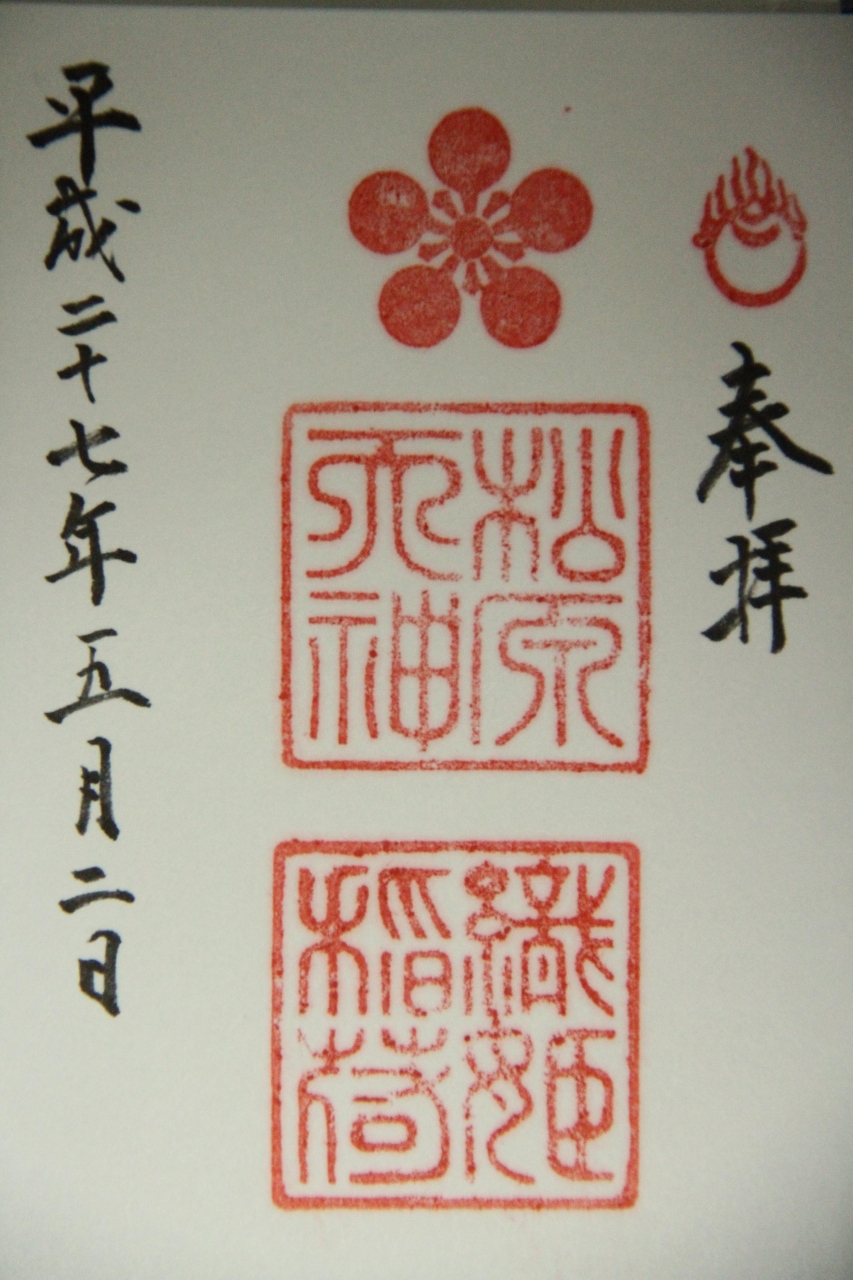 奉拝
松原
天神
織姫
稲荷
平成二十七年五月二日